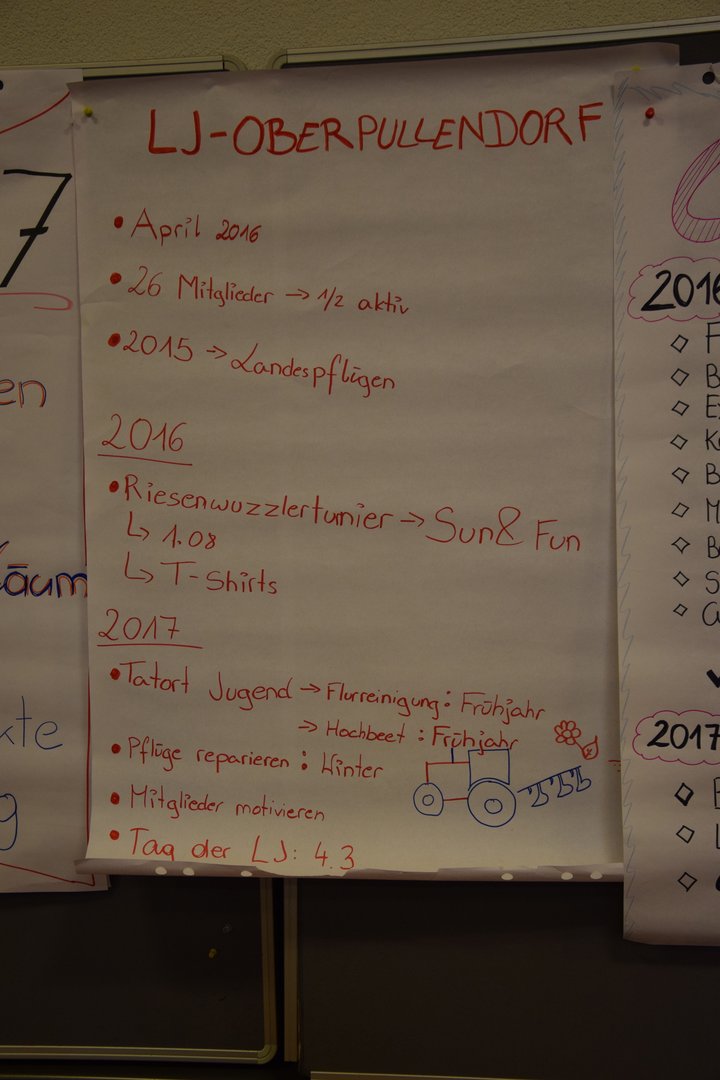 LJ-OBERPULLENDORF
• April 2016
• 26 Mitglieder → 1/2 aktiv
• 2015 → Landespflügen
2016
• Riesenwuzzlerturnier → Sun & Fun
↳ 1.08
↳ T-Shirts
2017
• Tatort Jugend → Flurreinigung: Frühjahr
→ Hochbeet: Frühjahr
• Pflüge reparieren: Winter
• Mitglieder motivieren
• Tag der LJ: 4.3
7
en
äum
kte
g
2016
F
B
E
K
B
M
B
S
2017